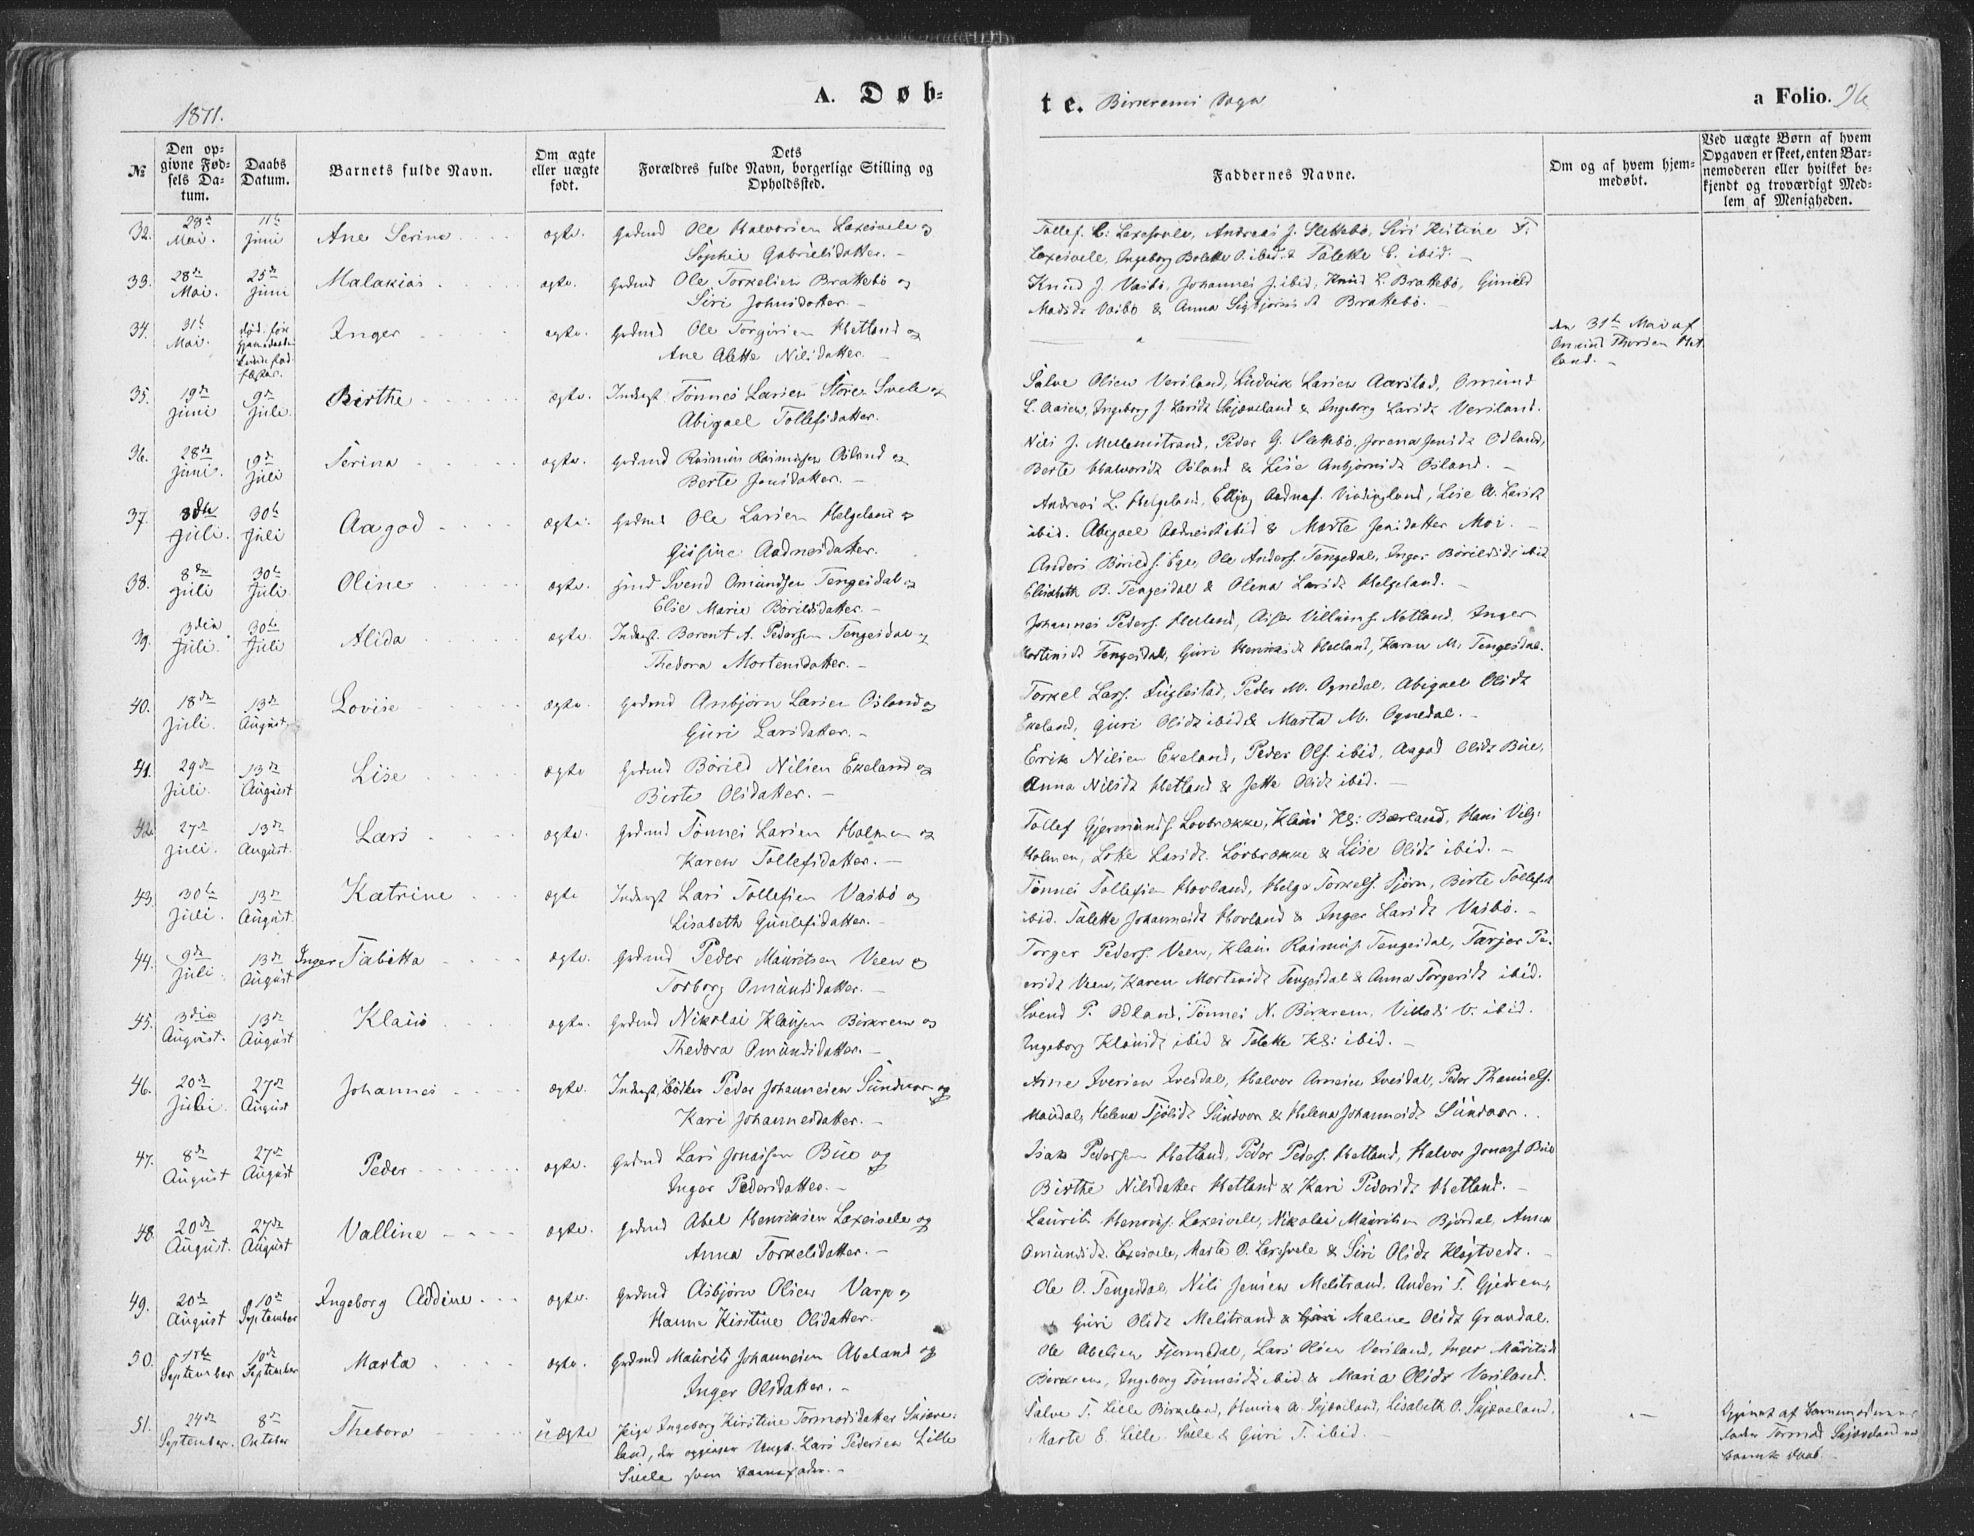 1871.
A. Døb-
te. Birkrems Sogn
a Folio. 96
№
Den op-
givne Fød-
sels Da-
tum.
Daabs
Datum.
Barnets fulde Navn.
Om ægte
eller uægte
født.
Dets
Forældres fulde Navn, borgerlige Stilling og
Opholdssted.
Faddernes Navne.
Om og af hvem hjem-
medøbt.
Ved uægte Børn af hvem
Opgaven er skeet, enten Bar-
nemoderen eller hvilket be-
kjendt og troværdigt Med-
lem af Menigheden.
32. 28de Mai. 11te Juni Ane Serine ægte. Gdmd Ole Halvorsen Laxesvele og
Sophie Gabrielsdatter.
Tollef Laxesvele, Andreas J. Slettebø, Siri Kistine T.
Laxesvele, Ingeborg Bolette O. ibid & Talette ibid.
33. 28de Mai. 25de Juni Malakias ægte. Gdmd Ole Torkelsen Brattebø og
Siri Johnsdatter.
Knud J. Vasbø, Johannes J. ibid, Knud L. Brattebø, Gunild
Madsdt Vasbø & Anna Brattebø.
34. 31te Mai. Inger ægte. Gdmd Ole Torgersen Hetland og
Ane Alette Nilsdatter.
den 31te Mai af
Omund Thorsen Het-
land.
35. 19de Juni 9de Juli Birthe ægte. Inderst Tønnes Larsen Store Svele og
Abigael Tollefsdatter.
Salve Olsen Versland, Ludvik Larsen Aarstad, Omund
L. Aasen, Ingeborg J. Larsdt Skjæveland & Ingeborg Larsdt Versland.
36. 28de Juni. 9de Juli Serina ægte. Gdmd Rasmus Rasmussen Osland og
Berte Jensdatter.
Nils J. Mellemstrand, Peder G. Slettebø, Jorena Jensdt Odland,
Berte Halvorsdt Osland & Lise Anbjørnsdt Osland.
37. 8de Juli. 30te Juli Aagod ægte. Gdmd Ole Larsen Helgeland og
Gusine Aadnesdatter.
Andreas L. Helgeland, Aadnes. Vindingland, Lise A. Larsdt
ibid. Abigael Aadnesdt ibid & Marte Jensdatter Moi.
38. 8de Juli 30te Juli Oline ægte. Gdmd Svend Omundsen Tengesdal og
Elie Marie Børildsdatter.
Anders Børilds. Ege, Ole Anders. Tengesdal, Inger Børildsdt ibid
Elisabeth B. Tengesdal & Olena Larsdt Helgeland.
39. 3die Juli. 30te Juli Alida ægte. Inderst Berent A. Pedersen Tengesdal og
Thedora Mortensdatter.
Johannes Peders. Helland, Villums. Netland, Inger
Mortensdt Tengesdal, Guri Henriksdt Helland, Karen M. Tengesdal.
40. 18de Juli. 13de August. Lovise ægte. Gdmd Anbjørn Larsen Osland og
Guri Larsdatter.
Torkel Lars. Fuglestad, Peder M. Ognedal, Abigael Olsdt
Ekeland, Guri Olsdt ibid & Marta M. Ognedal.
41. 29de Juli. 13de August Lise ægte Gdmd Børild Nilsen Ekeland og
Birte Olsdatter.
Errik Nilsen Ekeland, Peder Ols. ibid, Aagod Olsdt Bue,
Anna Nilsdt Hetland & Jette Olsdt ibid.
42. 27de Juli. 13de August. Lars ægte. Gdmd Tønnes Larsen Holmen og
Karen Tollefsdatter.
Tollef Gjermunds. Lovbrække, Klaus Kls: Bærland, Hans
Holmen, Lotte Larsdt Lovbrække & Lise Olsdt ibid.
43. 30te Juli. 13de August. Katrine ægte Inderst Lars Tollefsen Vasbø og
Lisabeth Gunlefsdatter.
Tønnes Tollefsen Hovland, Helge Torkels. Tjørn, Birte Tollefsdt
ibid. Talette Johannesdt Hovland & Inger Larsdt Vasbø.
44. 9de Juli. 13de August Inger Tabitta ægte. Gdmd Peder Mauritsen Veen og
Torborg Omundsdatter.
Torger Peders. Veen, Klaus Rasmus. Tengesdal, Tarjer Pe-
ersdt Veen, Karen Mortensdt Tengesdal & Anna Torgersdt ibid.
45. 3die August. 13de August Klaus ægte. Gdmd Nikolai Klausen Birkrem og
Thedora Omundsdatter.
Svend P. Odland, Tønnes N. Birkrem, V. ibid.
Ingeborg Klausdt ibid & Talette Kls: ibid.
46. 20de Juli. 27de August Johannes ægte. Inderst, Bødker Peder Johannesen Sundvor og
Kari Johannesdatter.
Arne Iversen Ivesdal, Halvor Arnesen Ivesdal, Peder
Maudal, Helena Sundvor & Helena Johannesdt Sundvor.
47. 8de August 27de August Peder ægte. Gdmd Lars Jonassen Bue og
Inger Pedersdatter.
Isak Pedersen Hetland, Peder Peders. Hetland, Halvor Jonas. Bue
Birthe Nilsdatter Hetland & Kari Pedersdt Hetland.
48. 20de August. 27de August Valline ægte. Gdmd Abel Henriksen Laxesvele og
Anna Torkelsdatter.
Laurits Henriks. Laxesvele, Nikolai Mauritsen Bjordal, Anna
Omundsdt Laxesvele, Marte O. Laxesvele & Siri Olsdt Kløgtvedt.
49. 20de August 10de September Ingeborg Addine ægte. Gdmd Asbjørn Olsen Varp og
Hanne Kirstine Olsdatter.
Ole O. Tengesdal, Nils Jensen Melstrand, Anders T. Gjedrem,
Guri Olsdt Melstrand & Malene Olsdt Grandal.
50. September 10de September Marta ægte. Gdmd Maurits Johannesen Abeland og
Inger Olsdatter.
Ole Abelsen Fjermedal, Lars Olsen Versland, Inger Mauritsdt
Birkrem, Ingeborg Tønnesdt ibid & Maria Olsdt Versland.
51. 24de September. 8de October Thebora uægte Pige Ingeborg Kirstine Tormodsdatter Skjæve-
land, der opgiver Ungk. Lars Pedersen Lille
Svele som Barnefader.
Salve T. Lille Birkeland, Henrik A. Skjæveland, Lisabeth O. Skjæveland,
Marte S. Lille Svele & Guri T. ibid.
Opgivet af Barnemoderens
Fader Tormod Skjæveland ved
Barnets Daab.